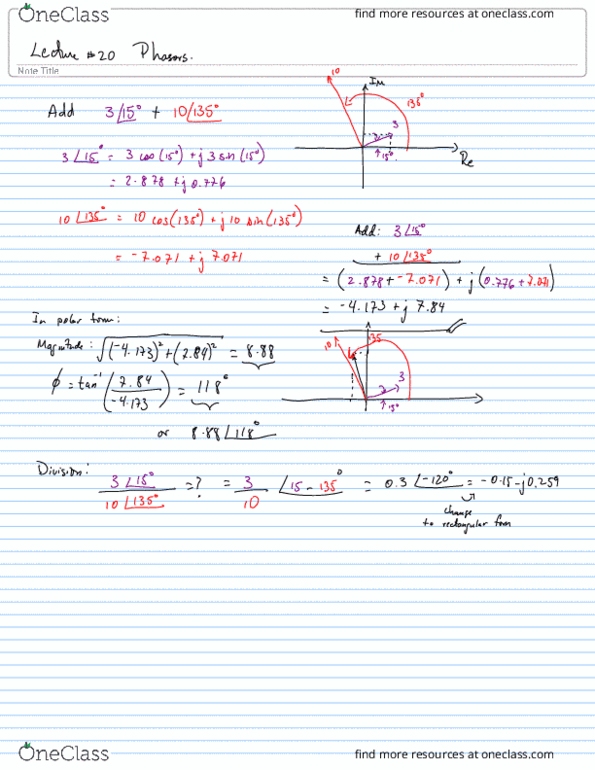 OneClass
find more resources at oneclass.com
Lecture #20 Phasors.
Note Title
Add 3∠15° + 10∠135°
10 Im 135° 3 3 15° Re
3∠15° = 3 cos(15°) + j 3 sin(15°)
= 2.898 + j 0.776
10∠135° = 10 cos(135°) + j 10 sin(135°)
= -7.071 + j 7.071
Add: 3∠15°
+ 10∠135°
= (2.898 + -7.071) + j(0.776 + 7.071)
= -4.173 + j 7.84
In polar form:
Magnitude: √(-4.173)² + (7.84)² = 8.88
10 135 3 15°
φ = tan⁻¹(7.84/-4.173) = 118°
or 8.88∠118°
Division:
3∠15° / 10∠135° = ? = 3/10 ∠15 - 135° = 0.3∠-120° = -0.15 - j0.259
change
to rectangular form
OneClass
find more resources at oneclass.com